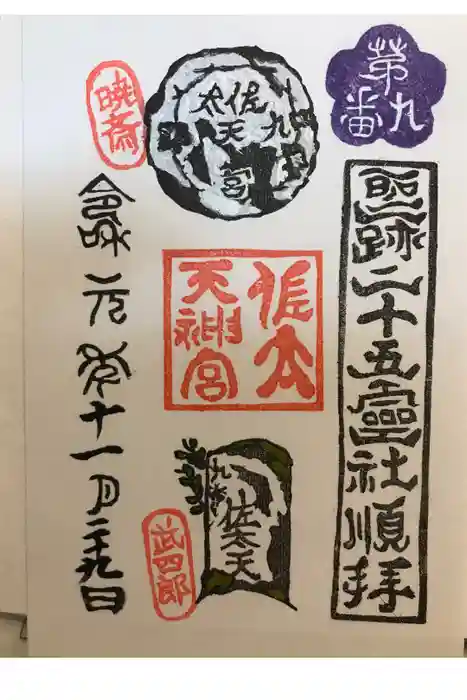 第九番
聖跡二十五霊社順拝
佐太天宮
九
佐太
天神宮
九番
佐太天
暁斎
令和元年十一月二十九日
武四郎